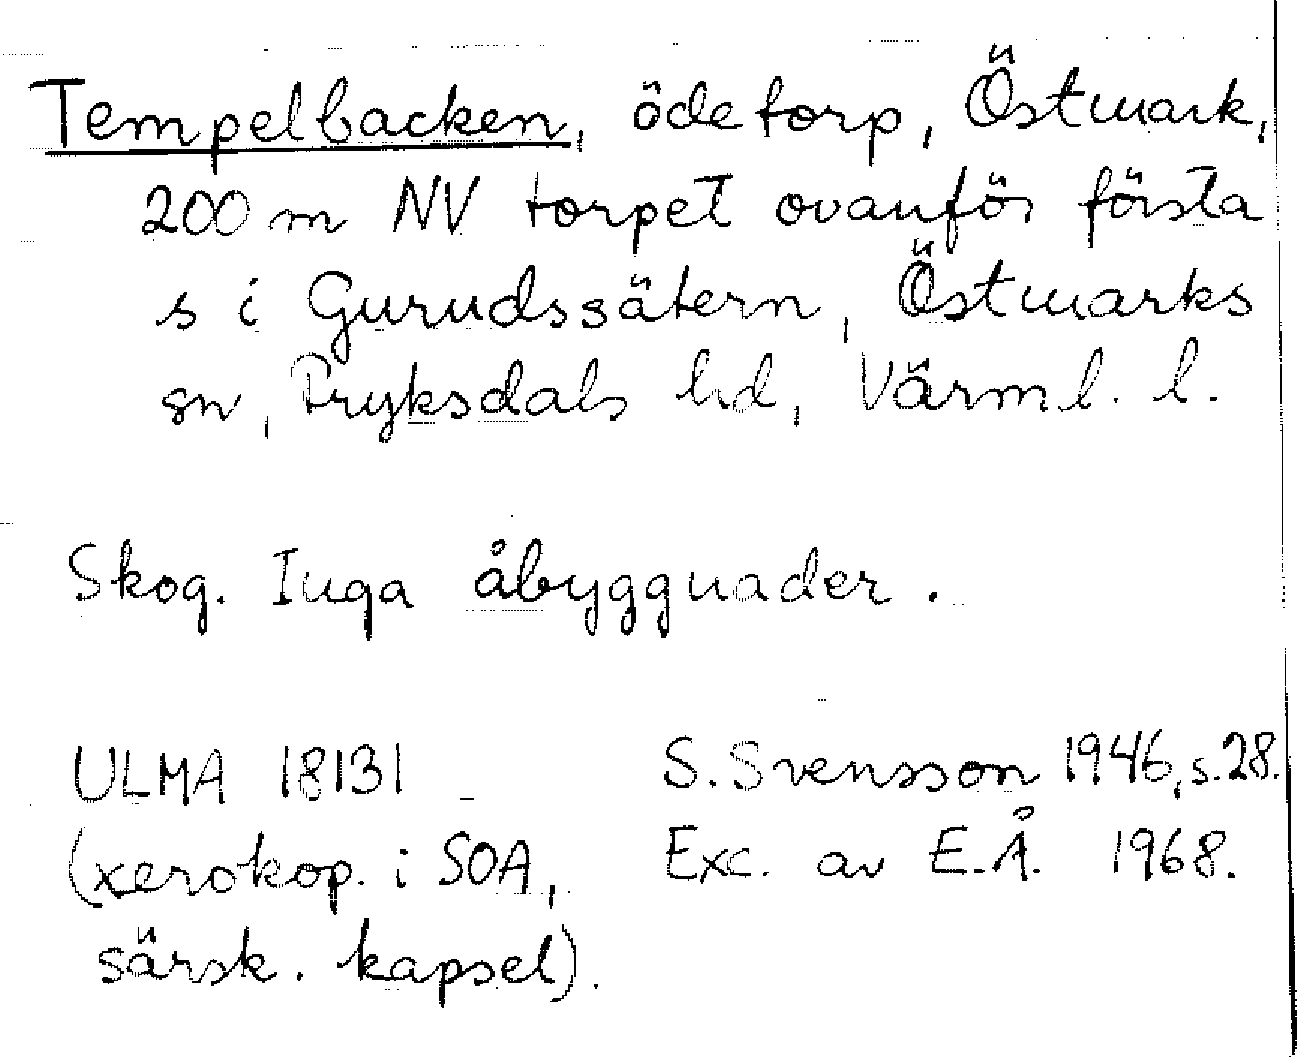 Tempelbacken, ödetorp, Östmark,
200 m NV torpet ovanför första
s i Gurudssätern, Östmarks
sn, Fryksdals hd, Värml. l.
Skog. Inga åbyggnader.
ULMA 18131 S. Svensson 1946, s. 28.
(xerokop. i SOA, Exc. av E.Å. 1968.
särsk. kapsel).